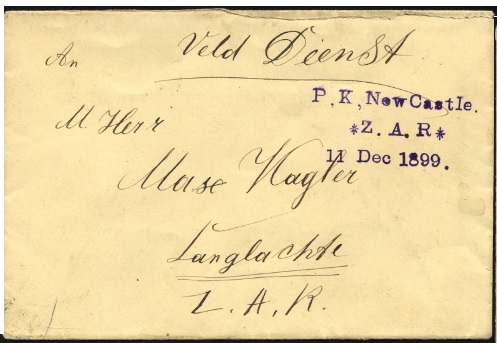 Veld Dienst
An
P. K. NewCastle.
*Z. A. R*
11 Dec 1899.
M. Herr
Max Hagler
Langlachte
Z. A. R.